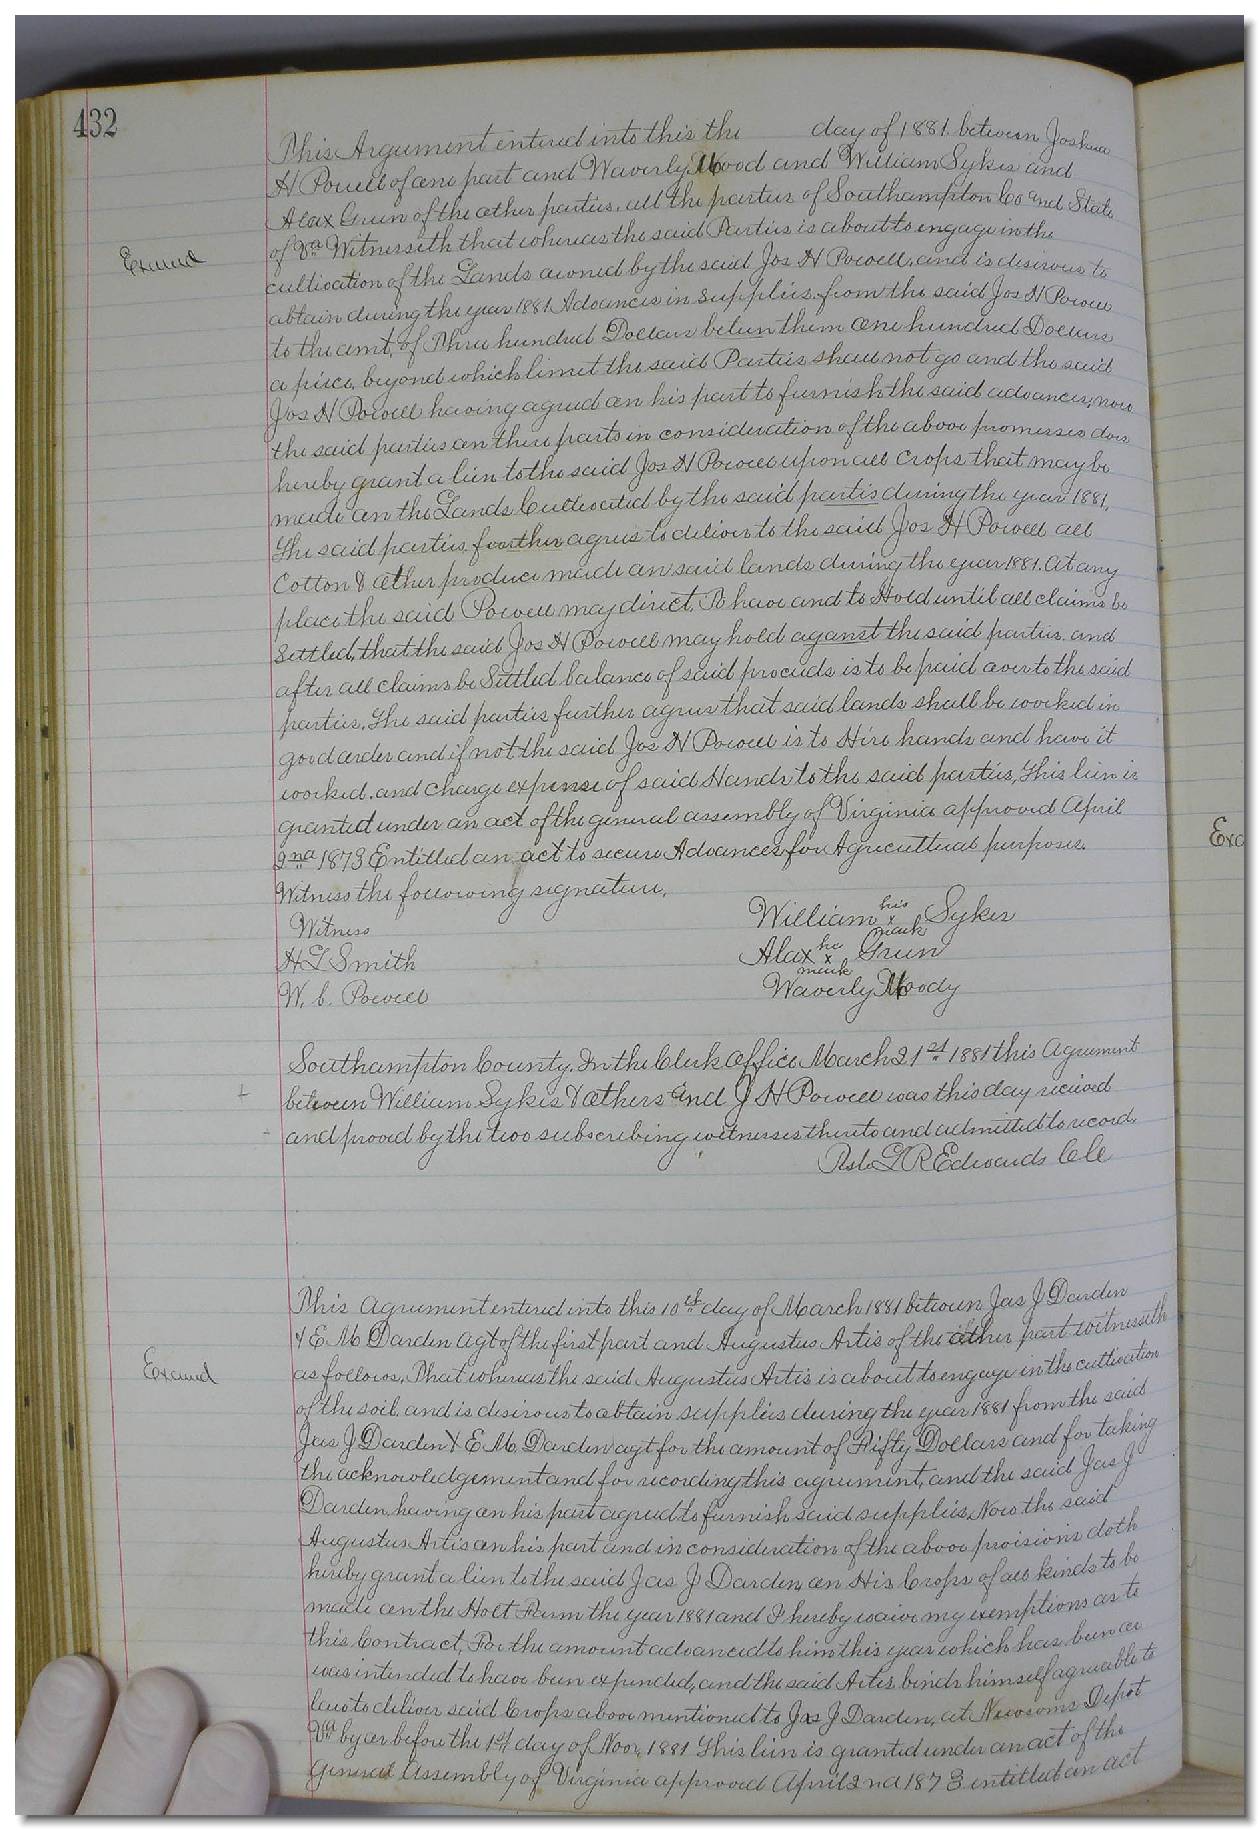 432
This Argument entered into this the day of 1881. between Joshua
H Powell of one part and Waverly Mood and William Sykes and
Alax Green of the other parties, all the parties of Southampton Co and State
of Va Witnesseth that whereas the said Parties is about to engage in the
Examd
cultivation of the Lands owned by the said Jos H Powell, and is desirous to
obtain during the year 1881 Advances in supplies from the said Jos H Powell
to the amt, of Three hundred Dollars betwn them One hundred Dollars
a piece, beyond which limit the said Parties shall not go and the said
Jos H Powell having agreed on his part to furnish the said advances, now
the said parties on there parts in consideration of the above promerses does
hereby grant a lien to the said Jos H Powell upon all crops that may be
made on the Lands Cultivated by the said partis during the year 1881,
The said parties fourther agrees to deliver to the said Jos H Powell all
Cotton & other produce made on said lands during the year 1881. At any
place the said Powell may direct, To have and to Hold until all claims be
Settled, that the said Jos H Powell may hold aganst the said parties. and
after all claims be Settled balance of said proceeds is to be paid over to the said
parties. The said parties further agrees that said lands shall be worked in
good order and if not the said Jos H Powell is to Hire hands and have it
worked. and charge expense of said Hands to the said parties, This lien is
granted under an act of the general assembly of Virginia approved April
2nd 1873 Entitled an act to secure Advances for Agricultural purposes.
Witness the following signature,
Witness
William his x mark Sykes
H L Smith
Alax his x mark Green
W. C. Powell
Waverly Moody
Southampton County, In the Clerk Office March 21st 1881 this Agreement
between William Sykes & others and J H Powell was this day received
and proved by the two subscribing witnesses thereto and admitted to record.
L R Edwards Clk
This Agreement entered into this 10th day of March 1881 between Jas J Darden
& E M Darden agt of the first part and Augustus Artis of the other part witnesseth
Examd
as follows, That whereas the said Augustus Artis is about to engage in the cultivation
of the soil and is desirous to obtain supplies during the year 1881 from the said
Jas J Darden & E M. Darden agt for the amount of Fifty Dollars and for taking
the acknowledgement and for recording this agreement, and the said Jas J
Darden, having on his part agreed to furnish said supplies, Now the said
Augustus Artis on his part and in consideration of the above provisions doth
hereby grant a lien to the said Jas J Darden, on His Crops of all kinds to be
made on the Holt Farm the year 1881 and I hereby waive my exemptions as to
this Contract, For the amount advanced to him this year which has been or
was intended to have been expended, and the said Artis, binds himself agreable to
law to deliver said Crops above mentioned to Jas J Darden, at Newsoms Depot
Va by or before the 1st day of Nov, 1881 This lien is granted under an act of the
General Assembly of Virginia approved April 2nd 1873 entitled an act